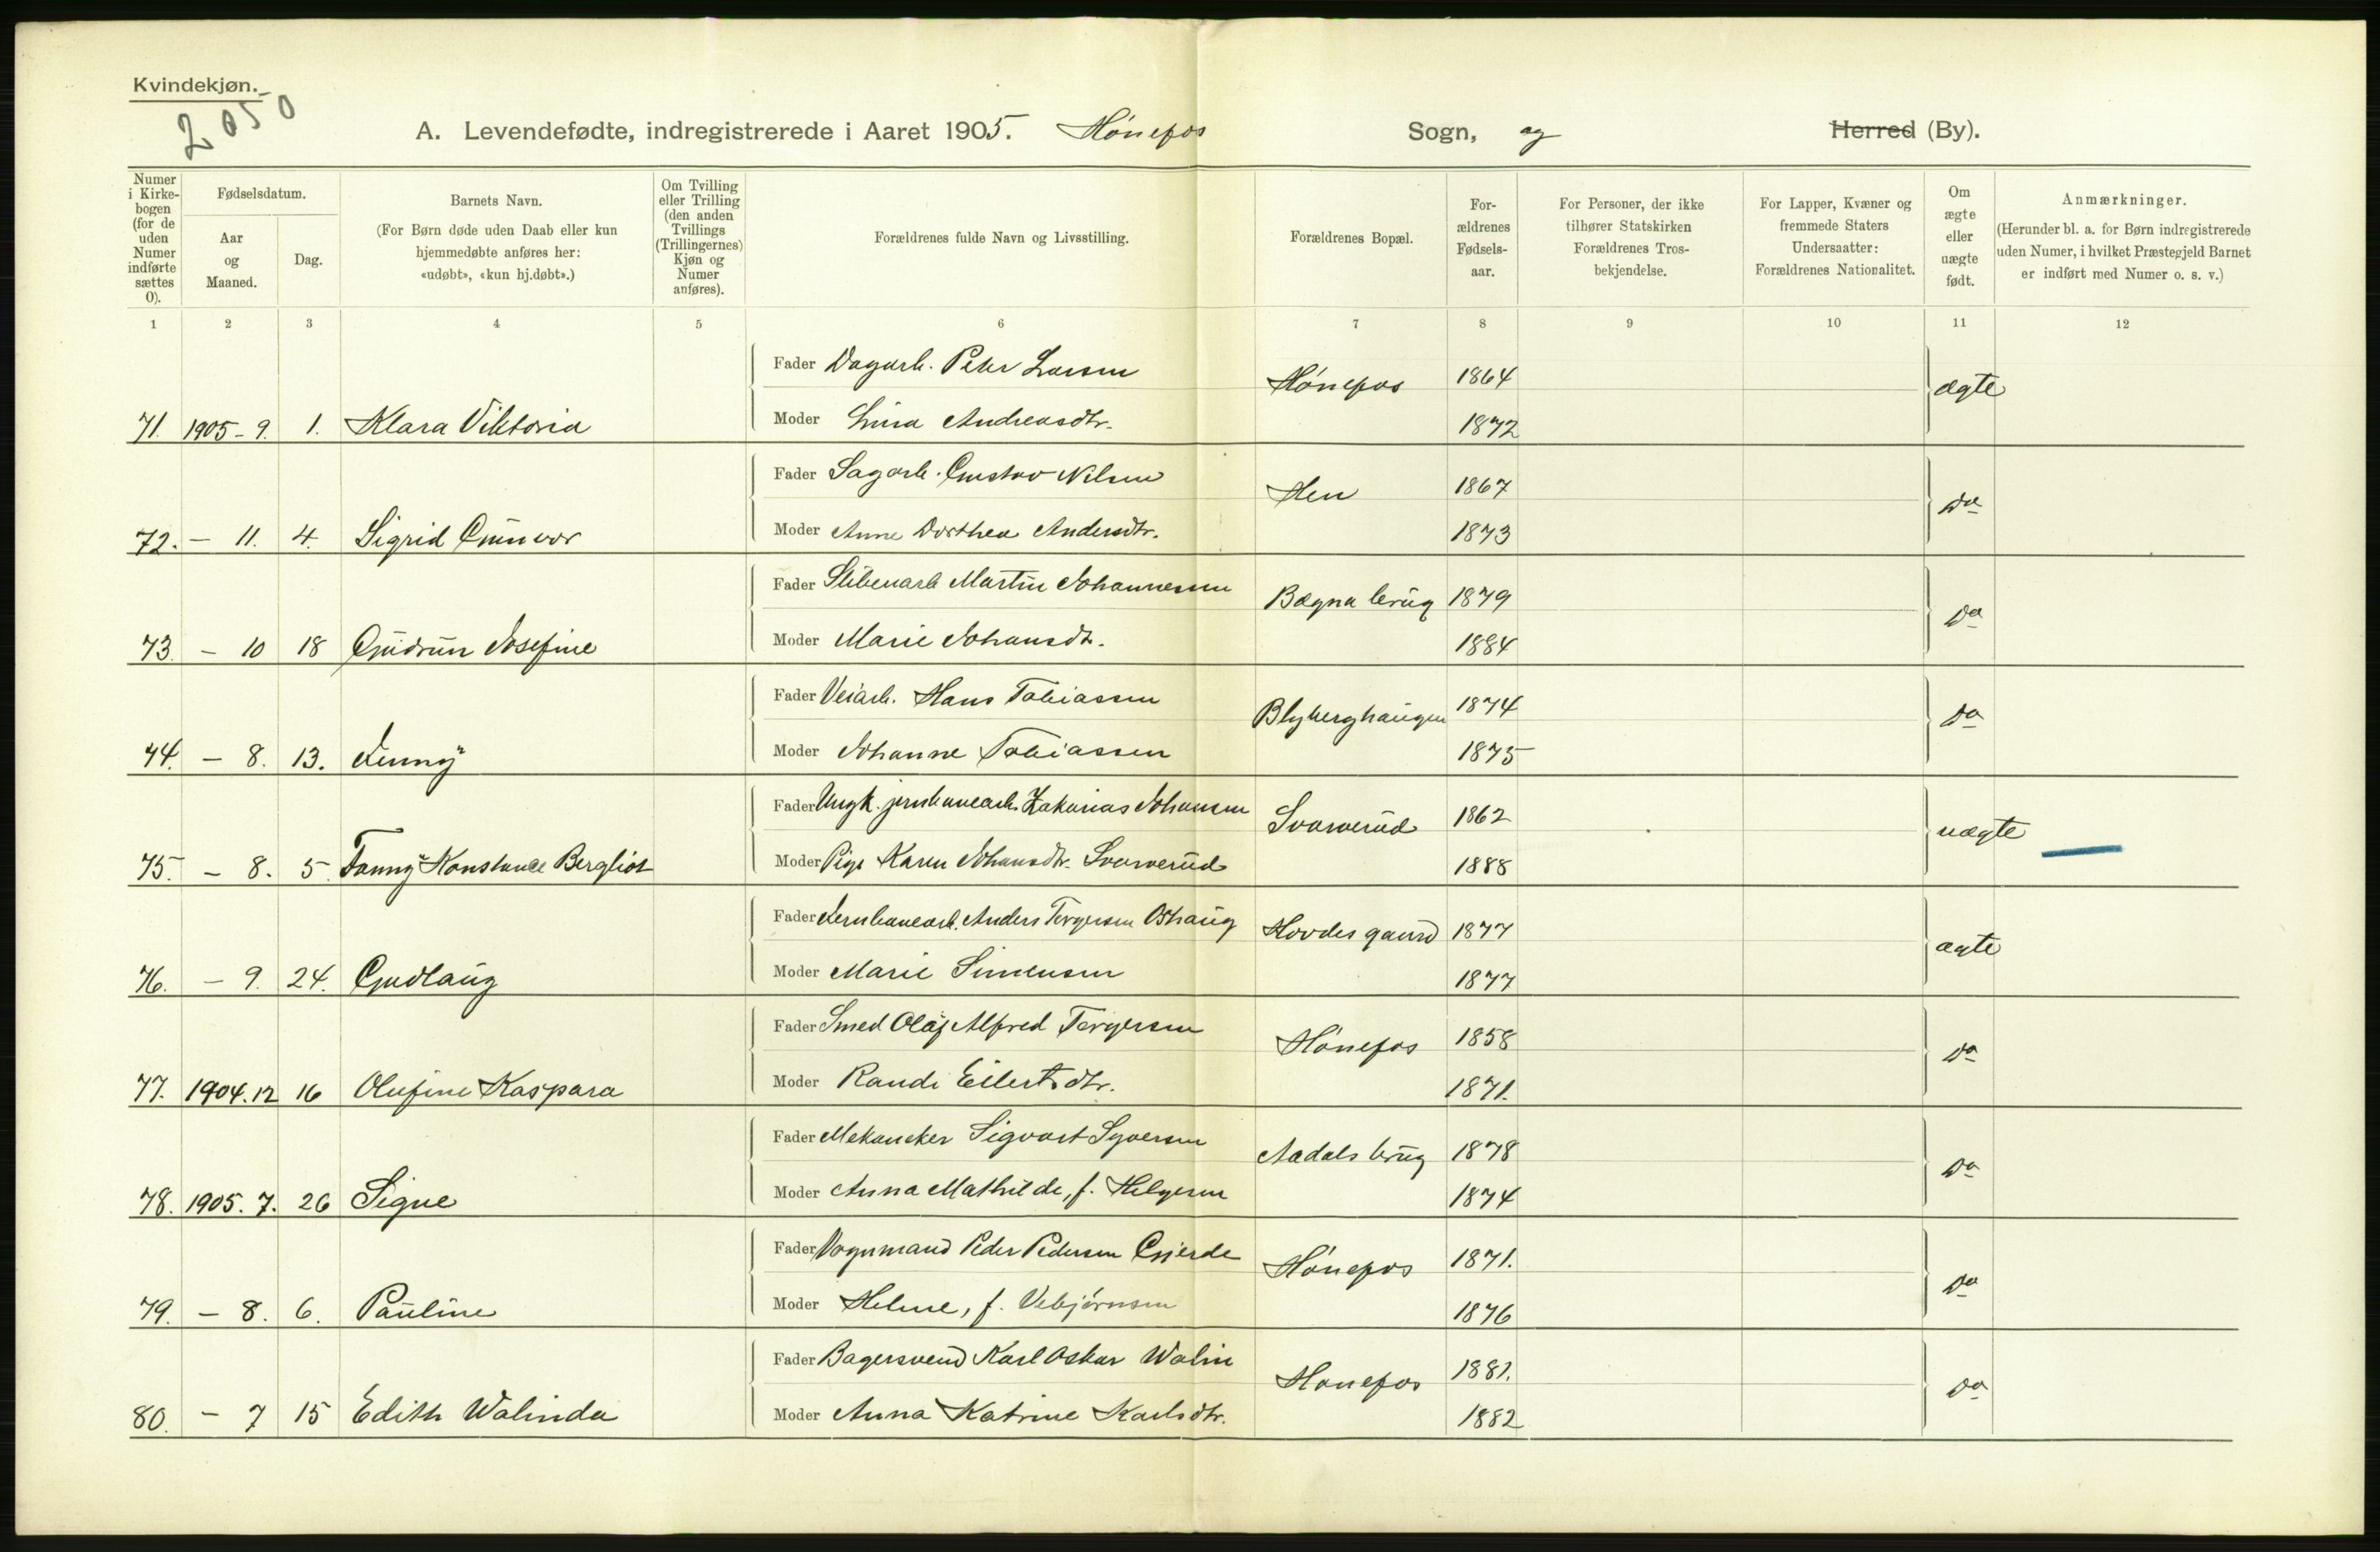 Kvindekjøn.
2050
A. Levendefødte, indregistrerede i Aaret 1905. Hønefos Sogn, og Herred (By).
Numer i Kirke-bogen (for de uden Numer indførte sættes 0).
Fødselsdatum.
Aar og Maaned.
Dag.
Barnets Navn.
(For Børn døde uden Daab eller kun hjemmedøbte anføres her: «udøbt», «kun hj.døbt».)
Om Tvilling eller Trilling (den anden Tvillings (Trillingernes) Kjøn og Numer anføres).
Forældrenes fulde Navn og Livsstilling.
Forældrenes Bopæl.
For-ældrenes Fødsels-aar.
For Personer, der ikke tilhører Statskirken Forældrenes Tros-bekjendelse.
For Lapper, Kvæner og fremmede Staters Undersaatter: Forældrenes Nationalitet.
Om ægte eller uægte født.
Anmærkninger.
(Herunder bl. a. for Børn indregistrerede uden Numer, i hvilket Præstegjeld Barnet er indført med Numer o. s. v.)
1 2 3 4 5 6 7 8 9 10 11 12
Fader Dagarb. Peter Larsen Hønefos 1864 ægte
71. 1905-9. 1. Klara Viktoria Moder Lina Andreasdtr. 1872
Fader Sagarb. Gustav Nilsen Hen 1867 do
72. - 11. 4. Sigrid Gunvor Moder Anne Dorthea Andersdtr. 1873
Fader Slibenarb Martin Johannessen Bægna brug 1879 do
73. - 10 18 Gudrun Josefine Moder Marie Johansdtr. 1884
Fader Veiarb. Hans Tobiassen Blyberghaugen 1874 do
74. - 8. 13. Jenny Moder Johanne Tobiassen 1875
Fader Ungk. jernbanearb. Zakarias Johansen Svarverud 1862 uægte
75. - 8. 5. Fanny Konstance Bergliot Moder Pige Karen Johansdtr. Svarverud 1888
Fader Jernbanearb. Anders Torgersen Oshaug Hovdes gaard 1877 ægte
76. - 9. 24. Gudlaug Moder Marie Simensen 1877
Fader Smed Olaf Alfred Torgersen Hønefos 1858 do
77. 1904.12 16 Olufine Kaspara Moder Randi Eilertsdtr. 1871.
Fader Mekaneker Sigvart Syversen Aadals brug 1878 do
78. 1905. 7. 26 Signe Moder Anna Mathilde, f. Helgesen 1874
Fader Vognmand Peder Pedersen Gjerde Hønefos 1871. do
79. - 8. 6. Pauline Moder Helene, f. Vebjørnsen 1876
Fader Bagersvend Karl Oskar Walin Hønefos 1881. do
80. - 7 15 Edith Walinda Moder Anna Katrine Karlsdtr. 1882